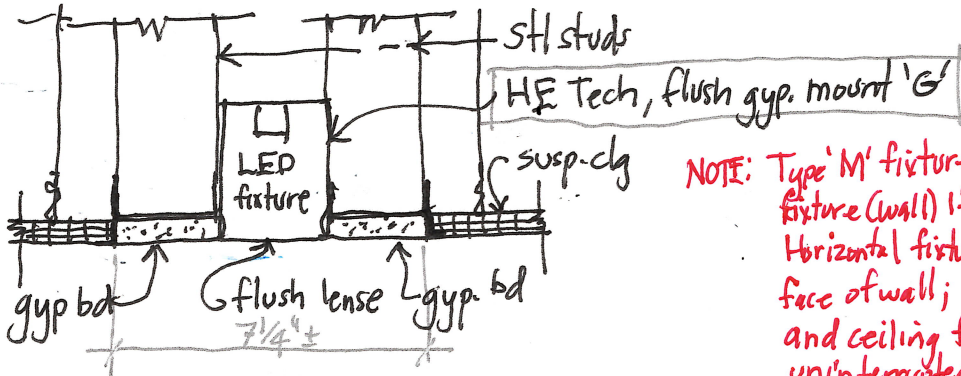 Stl studs
HE Tech, flush gyp. mount 'G'
LED
fixture
susp. clg
gyp bd
flush lense
gyp. bd
7 1/4" ±
NOTE: Type 'M' fixtur
fixture (wall)
Horizontal fixtu
face of wall;
and ceiling